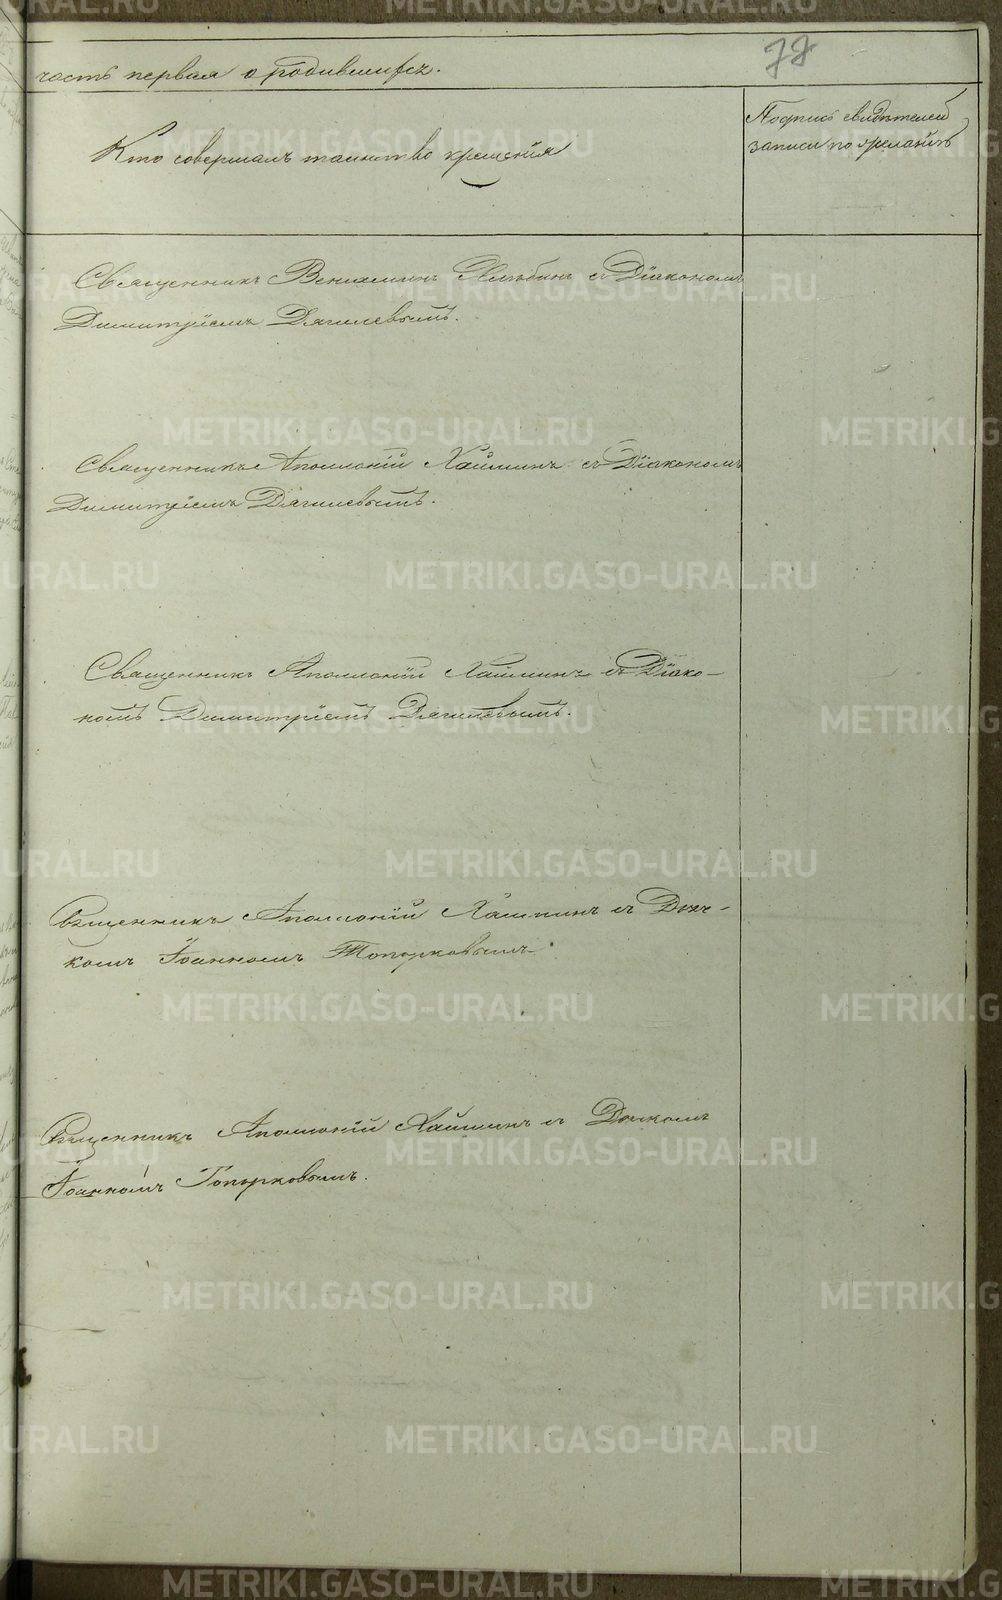 78
часть первая о родившихся.
Кто совершалъ таинство крещенія
Подпись свидѣтелей
записи по желанію
Священникъ Веніаминъ съ Діакономъ
Димитріемъ Дягилевымъ.
Священникъ Аполлоній Хаминъ съ Діакономъ
Димитріемъ Дягилевымъ.
Священникъ Аполлоній съ Діако-
номъ Димитріемъ Дягилевымъ.
Священникъ Аполлоній съ Дьяч-
комъ Іоанномъ Топорковымъ.
Священникъ Аполлоній съ Дьячкомъ
Іоанномъ Топорковымъ.
METRIKI.GASO-URAL.RU